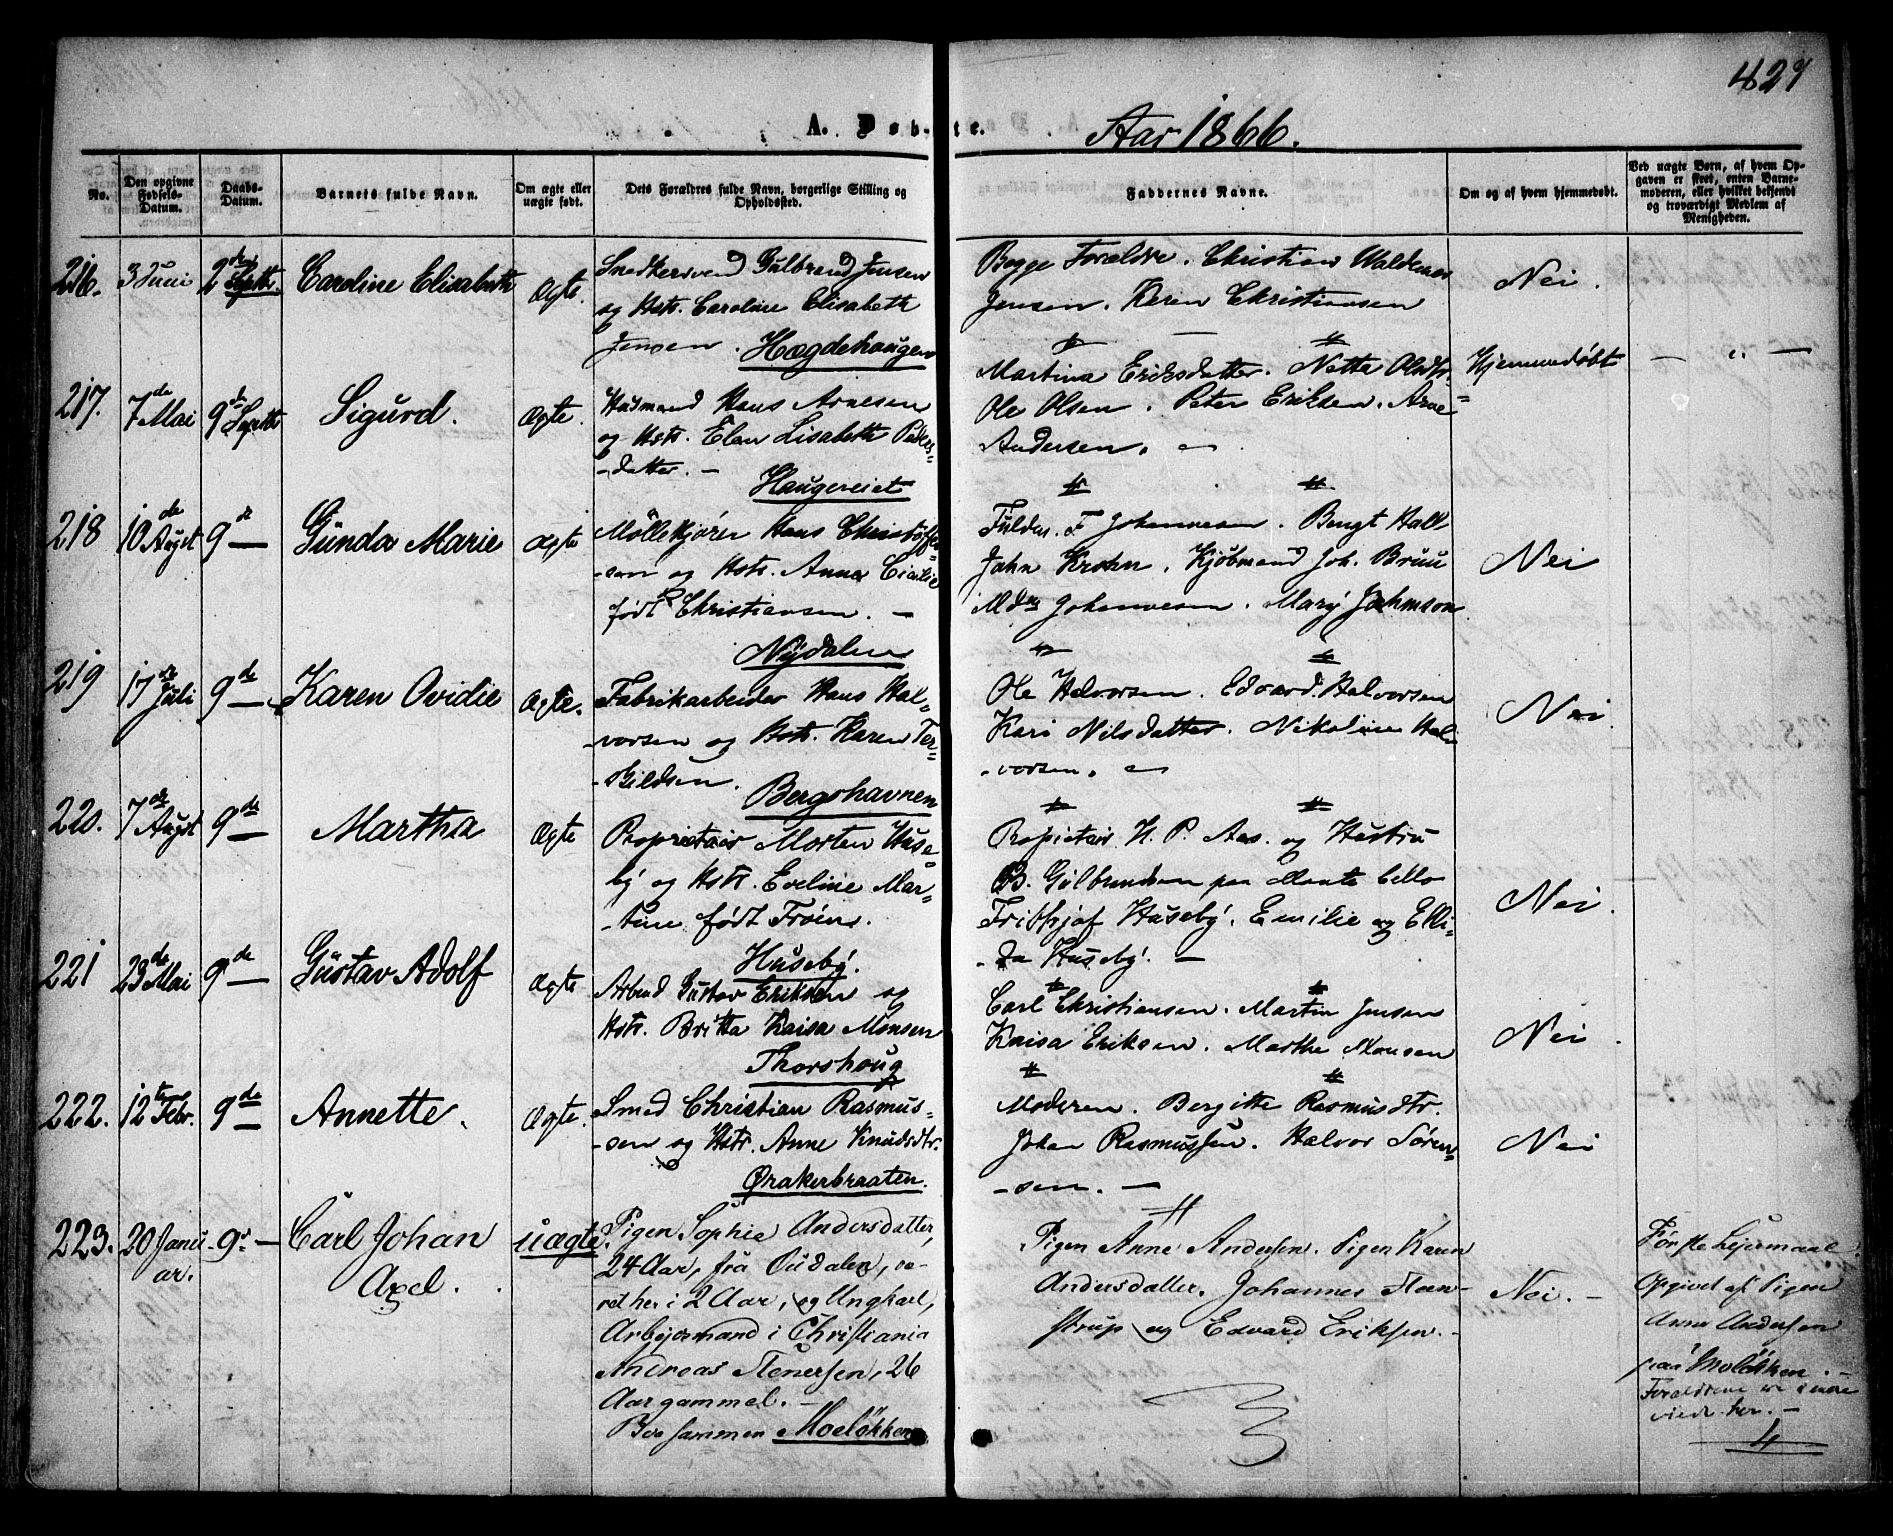 427
A. Døbte.
Aar 1866.
No.
Den opgivne Fødsels-Datum.
Daabs-Datum.
Barnets fulde Navn.
Om ægte eller uægte født.
Dets Forældres fulde Navn, borgerlige Stilling og Opholdssted.
Faddernes Navne.
Om og af hvem hjemmedøbt.
Ved uægte Børn, af hvem Opgaven er skeet, enten Barnemoderen, eller hvilket bekjendt og troværdigt Medlem af Menigheden.
216.
3 Juni
2den Septb.
Caroline Elisabeth
Ægte.
Snedkersvend Gulbrand Jensen
og Hstr. Caroline Elisabeth
Jensen. Hægdehaugen
Begge Forældre. Christian Waldemar
Jensen. Karen Christiansen
Nei.
217.
7de Mai
9de Septb
Sigurd.
Ægte.
Husmand Hans Arnesen
og Hstr. Elen Lisabeth Peders-
-datter. -
Haugereiet
Martina Eriksdatter. Netta Olsdtr.
Ole Olsen. Peter Eriksen. Arne
Andersen.
Hjemmedøbt
— " —
218
10de Augst
9de —
Gunda Marie
Ægte
Møllekjører Hans Christoffer-
-sen og Hstr. Anna Cicilie
født Christiansen. -
Nydalen
F Johannesen. Bengt Hall
John Krohn. Kjøbmand Joh. Bruu
Mdm Johannesen. Mary Johnson
Nei
219
17de Juli
9de —
Karen Ovidie
Ægte.
Fabrikarbeider Hans Hal-
-vorsen og Hstr. Karen Ter-
-kildsen.
Bergshavnen
Ole Halvorsen. Edvard Halvorsen
Kari Nilsdatter. Nikoline Hal
-vorsen.
Nei.
220.
7de Augst
9de —
Martha
Ægte
Proprietair Morten Huse-
by og Hstr. Eveline Mar-
-tine født Frøen.
Huseby.
Propietair H. P. Aas. og Hustru
B. Gulbrandsen paa Monte bello
Frithjof Huseby. Emilie og Elli-
-da Huseby. -
Nei.
221
23de Mai
9de —
Gustav Adolf
Ægte
Arbmd Gustav Eriksen og
Hstr. Britta Kaisa Monsen
Thorshoug
Carl Christiansen. Martin Jensen
Kaisa Eriksen. Marthe Monsen
Nei.
222.
12te Febr.
9de —
Annette.
Ægte.
Smed Christian Rasmus-
-sen og Hstr. Anne Knudsdtr.
Ørakerbraaten.
Moderen. Bergitte Rasmusdtr.
Johan Rasmussen. Halvor Søren-
-sen. -
Nei
223.
20 Janu-
ar.
9de —
Carl Johan
Axel.
uægte.
Pigen Sophie Andersdatter,
24 Aar, fra Oudalen, væ-
ret her i 2 Aar, og Ungkarl,
Arbejdsmand i Christiania
Andreas Stenersen, 26
Aar gammel. -
Bor sammen Moeløkken
Pigen Anne Andersen. Pigen Karen
Andersdatter. Johannes Steen-
strup og Edvard Eriksen. -
Nei. -
Første Lejermaal.
Opgivet af Pigen
Anne Andersen
paa Moeløkken. -
Forældrene ere senere
viede her. -
4